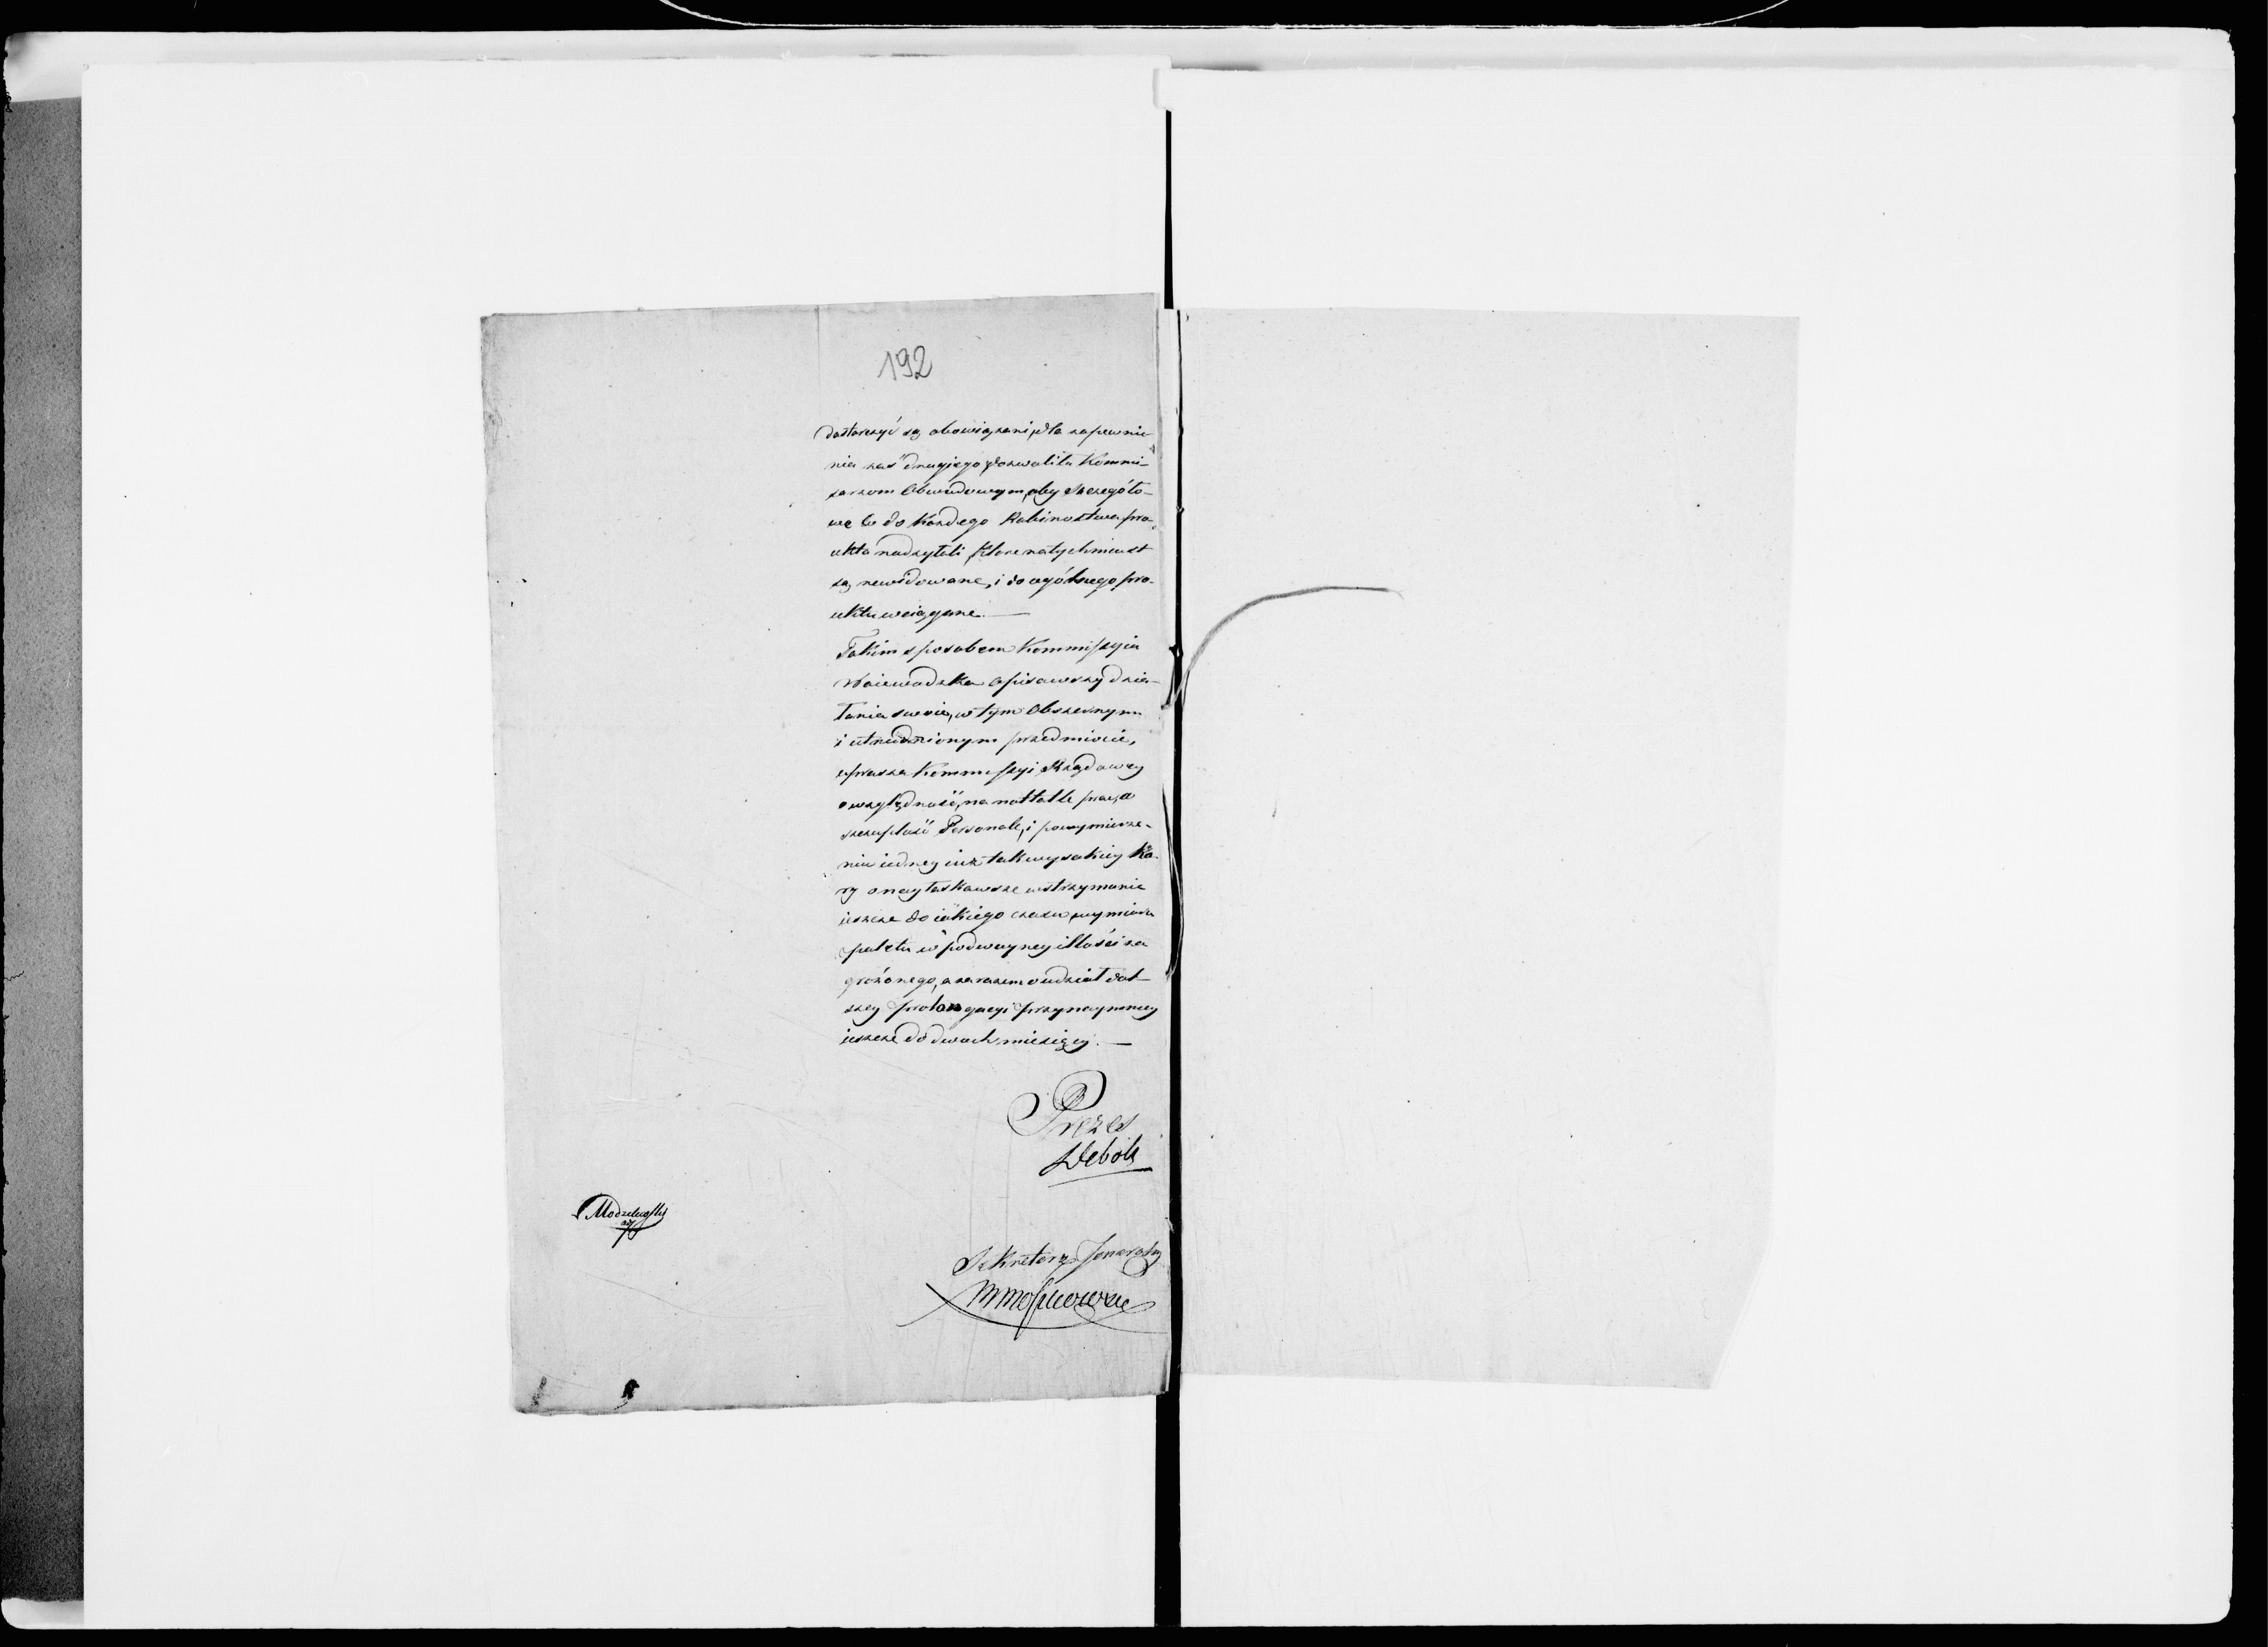 192
dostarczyć są obowiązani, dla zapewnie
nia zaś drugiego, dozwoliła Kommi-
sarzom Obwodowym, aby szczegóło-
we co do każdego Rabinostwa pro-
ekta nadsyłali, które natychmiast
są rewidowane, i do ogólnego pro-
ektu wciągane. —
Takim sposobem Kommissyia
Woiewodzka opisawszy dzia-
łania swoie, w tym Obszernym
i utrudzionym przedmiocie,
uprasza Kommissyi Rządowey
o względność, na nattałk pracy, a
szczupłość Personale, i po wymierze-
niu iedney iuż tak wysokiey ka-
ry o nayłaskawsze wstrzymanie
ieszcze do iakiego czasu, wymiaru
sztrafu w podwoyney illości za
grożonego, a zarazem o udział dal-
szey prolongacyi przynaymniey
ieszcze do dwóch miesięcy. —
Prezes
Deboli
Modzelewski
Sekretarz Jeneralny